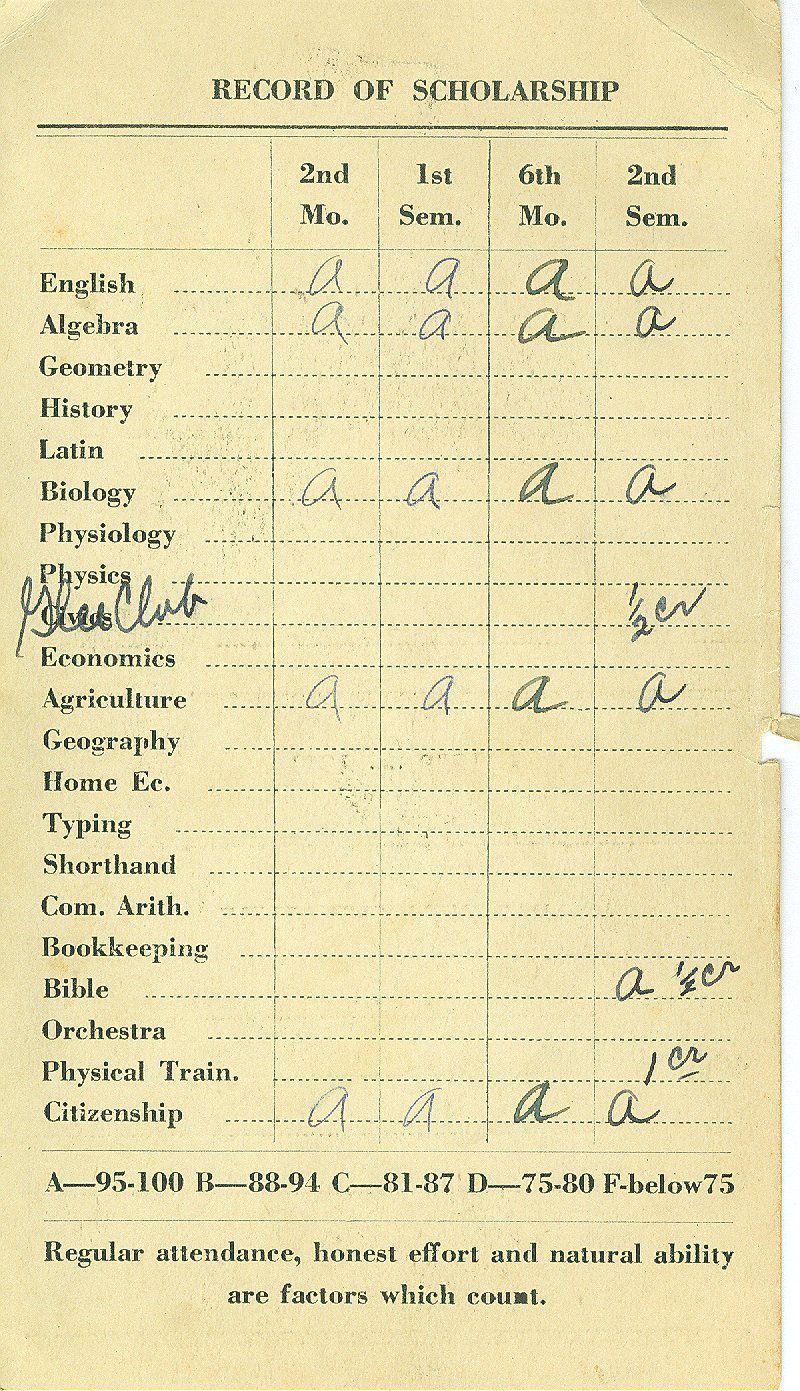 RECORD OF SCHOLARSHIP
2nd Mo. 1st Sem. 6th Mo. 2nd Sem.
English a a a a
Algebra a a a a
Geometry
History
Latin
Biology a a a a
Physiology
Physics
Civics Glee Club 1/2 cr
Economics
Agriculture a a a a
Geography
Home Ec.
Typing
Shorthand
Com. Arith.
Bookkeeping
Bible a 1/2 cr
Orchestra
Physical Train. 1 cr
Citizenship a a a a
A—95-100 B—88-94 C—81-87 D—75-80 F-below75
Regular attendance, honest effort and natural ability
are factors which count.